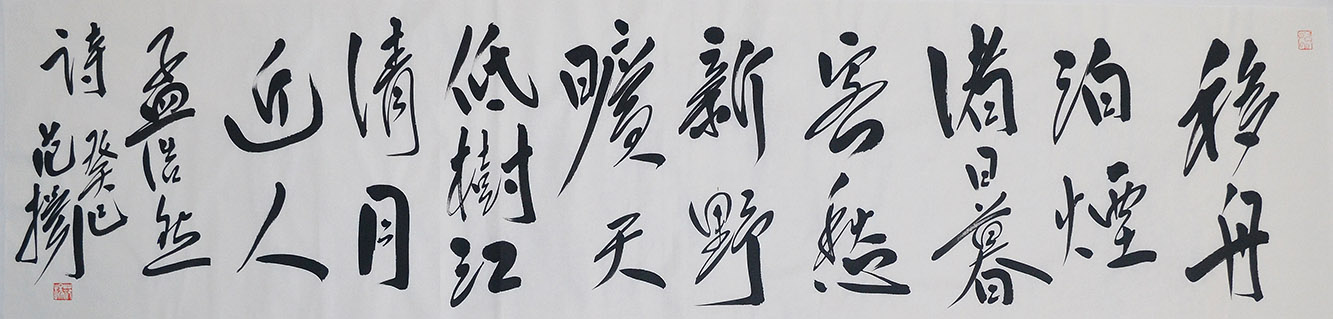 移舟
泊煙
渚日暮
客愁
新野
曠天
低樹江
清月
近人
孟浩然
詩
癸巳
范